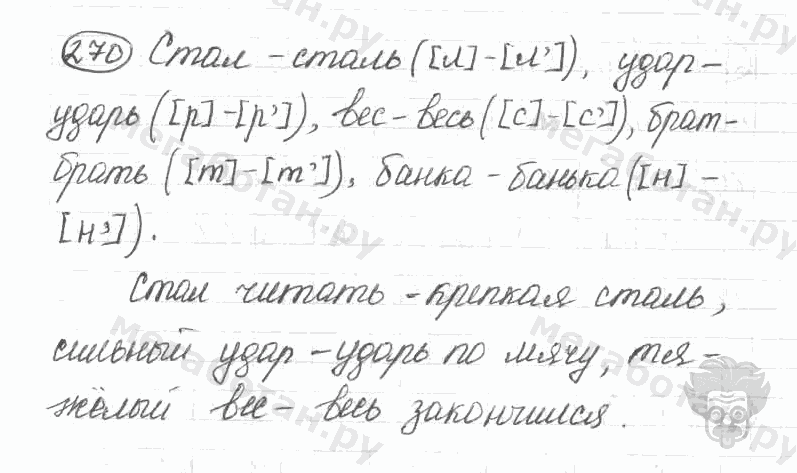 270 Стал - сталь ([л] - [л’]), удар -
ударь ([р] - [р’]), вес - весь ([с] - [с’]), брат -
брать ([т] - [т’]), банка - банька ([н] -
[н’]).
Стал читать - крепкая сталь,
сильный удар - ударь по мячу, тя-
жёлый вес - весь закончился.
мегаботан.ру
мегаботан.ру
мегаботан.ру
мегаботан.ру